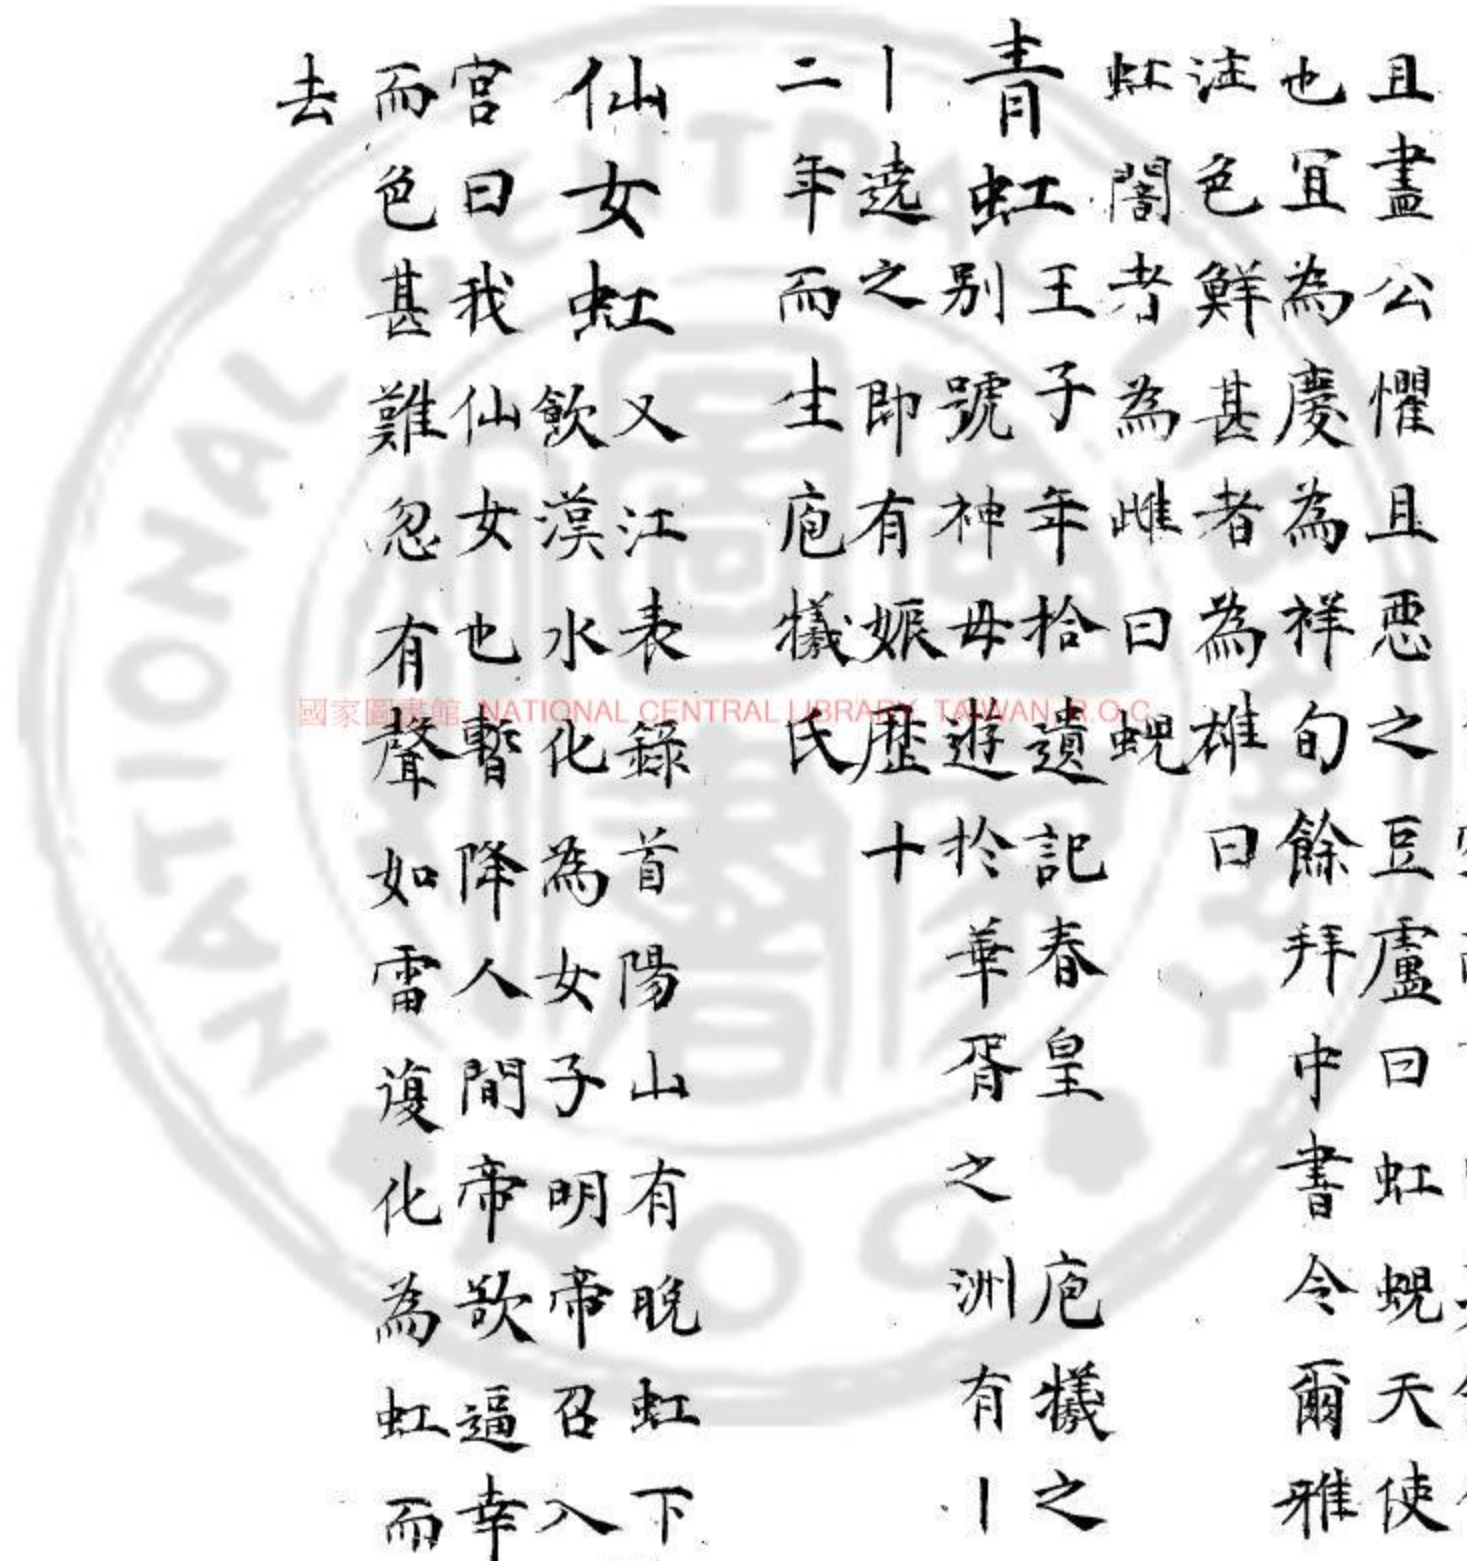 且盡公懼且惡之豆盧曰虹蜺天使
也冝為慶為祥旬餘拜中書令爾雅
注色鮮甚者為雄曰
虹闇者為雌曰蜺
青虹王子年拾遺記春皇庖犧之
別號神母遊於華胥之洲有丨
丨遶之即有娠歷十
二年而生庖犧氏
仙女虹又江表錄首陽山有晚虹下
飲漢水化為女子明帝召入
宮曰我仙女也暫降人間帝欲逼幸
而色甚難忽有聲如雷復化為虹而
去
國家圖書館 NATIONAL CENTRAL LIBRARY, TAIWAN, R.O.C.
NATIONAL CENTRAL LIBRARY
R.O.C